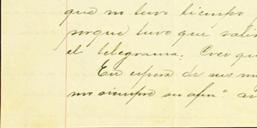 que no tuvo tiempo
porque tuvo que salir
el telegrama. Creo que
En espera de sus no
mo siempre su afmº